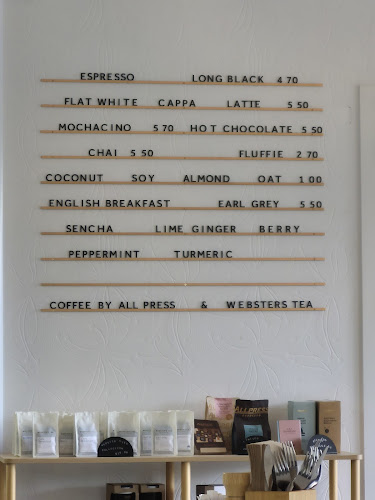 ESPRESSO LONG BLACK 4 70
FLAT WHITE CAPPA LATTE 5 50
MOCHACINO 5 70 HOT CHOCOLATE 5 50
CHAI 5 50 FLUFFIE 2 70
COCONUT SOY ALMOND OAT 1 00
ENGLISH BREAKFAST EARL GREY 5 50
SENCHA LIME GINGER BERRY
PEPPERMINT TURMERIC
COFFEE BY ALL PRESS & WEBSTERS TEA
ALLPRESS